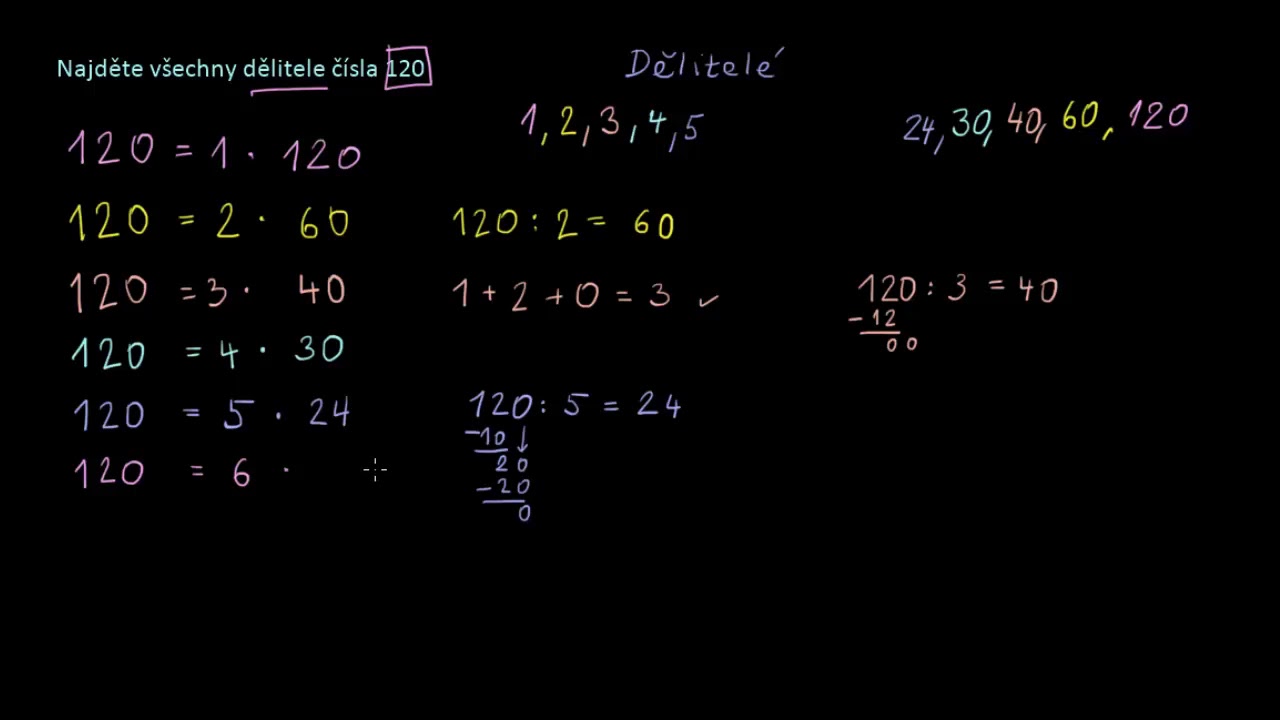 Najděte všechny dělitele čísla 120
Dělitelé
1, 2, 3, 4, 5
24, 30, 40, 60, 120
120 = 1 · 120
120 = 2 · 60
120 : 2 = 60
120 = 3 · 40
1 + 2 + 0 = 3 ✓
120 : 3 = 40
-12
00
120 = 4 · 30
120 = 5 · 24
120 : 5 = 24
-10↓
20
-20
0
120 = 6 ·